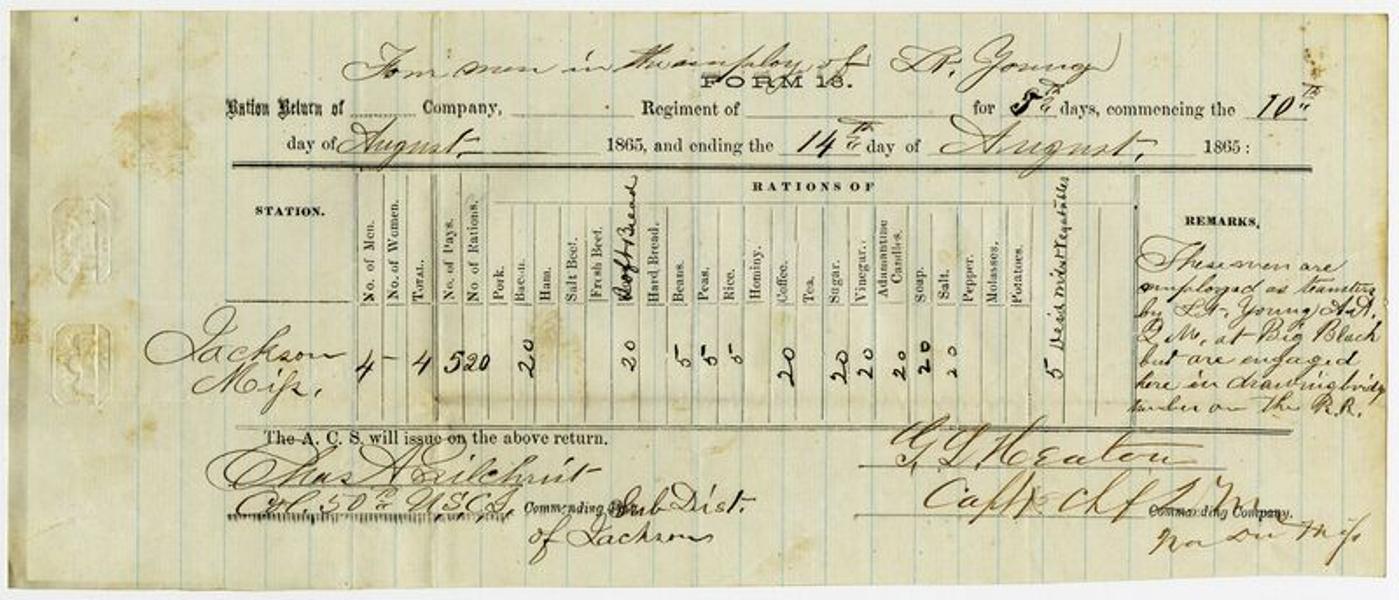 Four men in the employ of Lt. Young
FORM 13.
Ration Return of Company, Regiment of for 5th days, commencing the 10th
day of August 1865, and ending the 14th day of August. 1865:
RATIONS OF
STATION. No. of Men. No. of Women. TOTAL. No. of Days. No. of Rations. Pork. Bacon. Ham. Salt Beef. Fresh Beef. Soft Bread Hard Bread. Beans. Peas. Rice. Hominy. Coffee. Tea. Sugar. Vinegar. Adamantine Candles. Soap. Salt. Pepper. Molasses. Potatoes. Mixed Vegetables REMARKS.
Jackson 4 4 5 20 20 20 5 5 5 20 20 20 20 20 20 5
Miss.
These men are
employed as teamsters
by Lt. Young A.A.
Q M, at Big Black
but are engaged
here in drawing bridge
timber on the R.R.
The A. C. S. will issue on the above return.
Chas A Gilchrist
Col. 50th U.S.C.I. Commending Sub Dist.
of Jackson
Capt & Chf Q M Commanding Company.
Miss